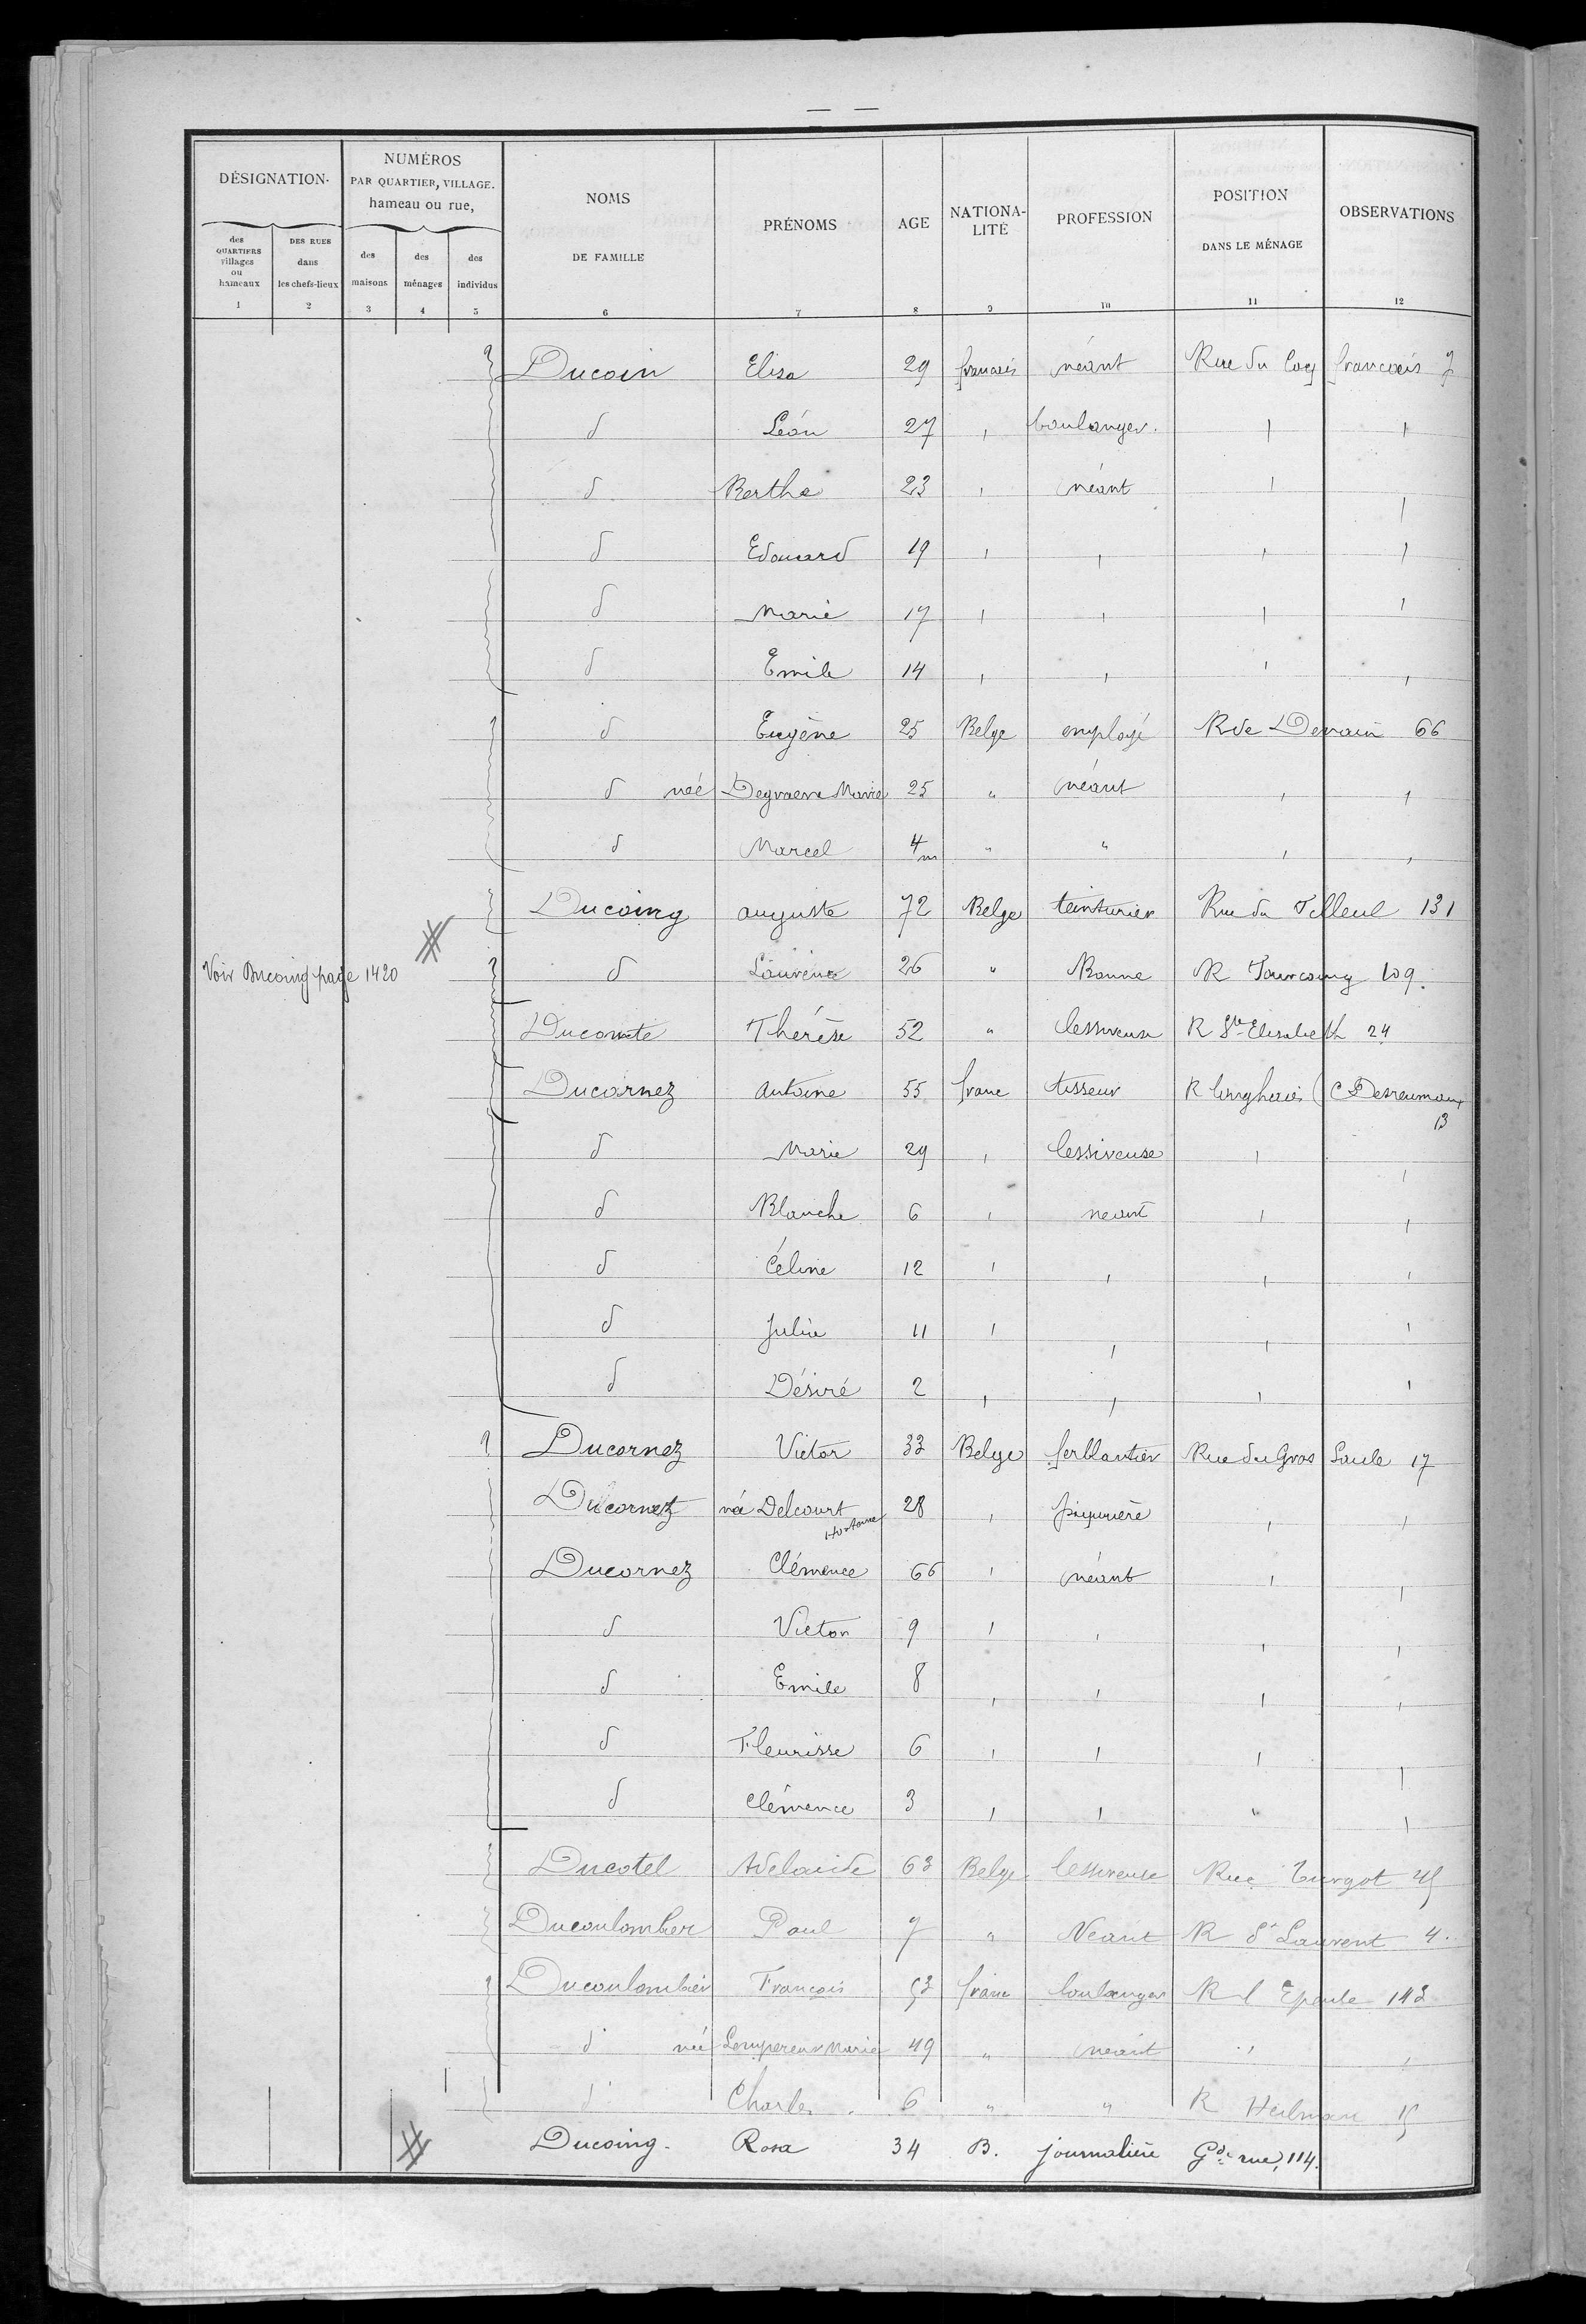 DÉSIGNATION.
NUMÉROS
PAR QUARTIER, VILLAGE.
hameau ou rue,
NOMS
DE FAMILLE
PRÉNOMS
AGE
NATIONA-
LITÉ
PROFESSION
POSITION
DANS LE MÉNAGE
OBSERVATIONS
des
QUARTIERS
villages
ou
hameaux
DES RUES
dans
les chefs-lieux
des
maisons
des
ménages
des
individus
1 2 3 4 5 6 7 8 9 10 11 12
Ducoin Elisa 29 francais néant Rue du Coq francais 7
d Léon 27 , boulanger. , ,
d Berthe 23 , néant , ,
d Edouard 19 , , , ,
d Marie 17 , , , ,
d Emile 14 , , , ,
d Eugène 25 Belge employé R de Denain 66
d née Marie 25 " néant , ,
d Marcel 4 m " " , ,
Ducoing auguste 72 Belge teinturier Rue du Tilleul 131
Voir Ducoing page 1420 d 26 " Bonne R Tourcoing 109.
Ducomte Thérèse 52 " lessiveuse R Ste Elisabeth 24
Ducornez Antoine 55 franc tisseur R Longhaies C Desreumaux
13
d Marie 29 , lessiveuse , ,
d Blanche 6 , neant , ,
d Céline 12 , , , ,
d Julie 11 , , , ,
d Désiré 2 , , , ,
Ducornez Victor 33 Belge ferblantier Rue du Gros Saule 17
Ducornez née Delcourt 28 , piqurière , ,
Ducornez Clémence 66 , néant , ,
d Victor 9 , , , ,
d Emile 8 , , , ,
d Fleurisse 6 , , , ,
d Clémence 3 , , " ,
Ducotel Adelaide 63 Belge lessiveuse Rue Turgot 45
Ducoulombier Paul 7 " Neant R St Laurent 4.
Ducoulombier Francois 53 franc boulanger R l Epeule 143
d née Lempereur Marie 49 " neant , ,
d Charles 6 " " R Heilman 15
Ducoing. Rosa 34 B. journalière Gde rue, 114.